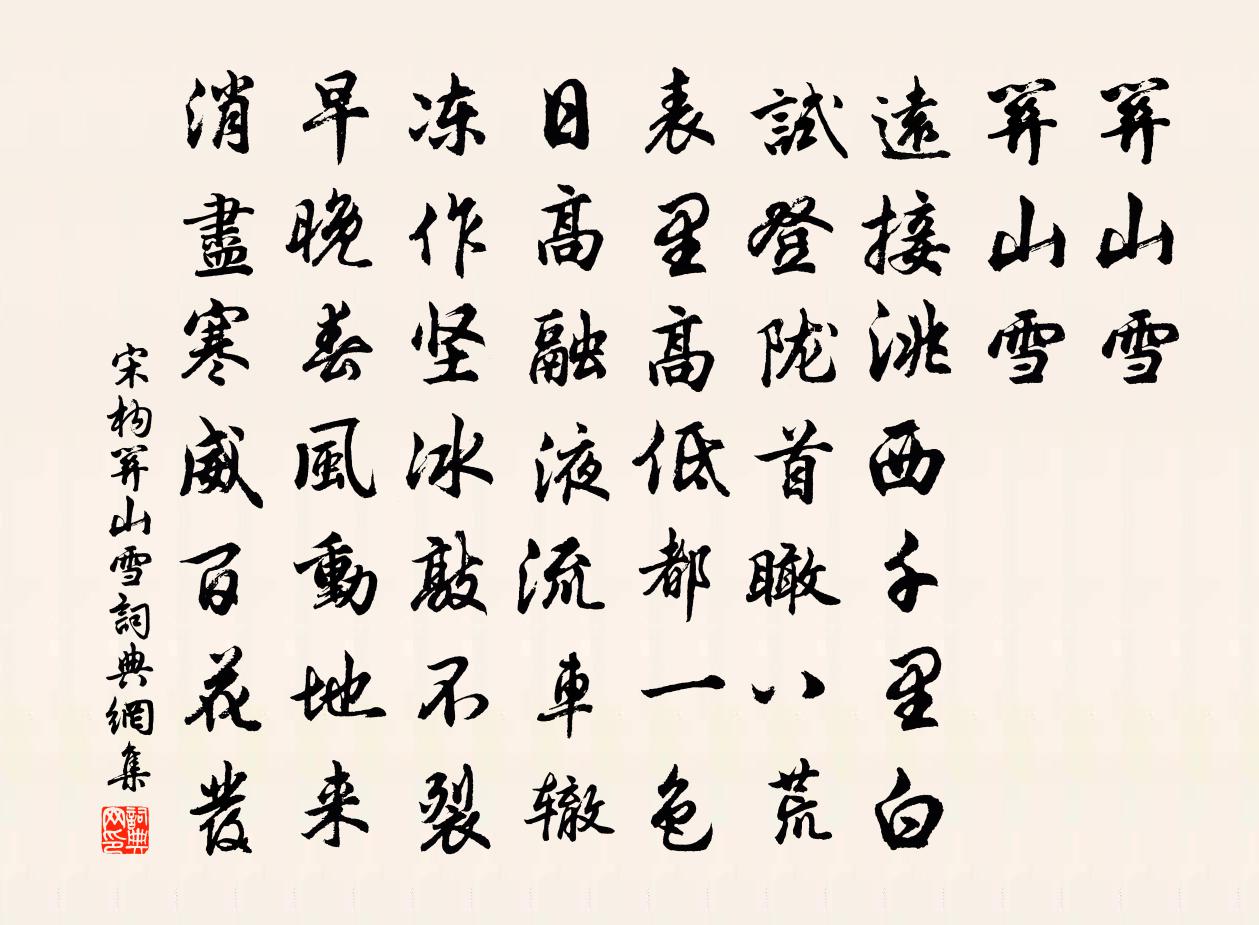 笄山雪
笄山雪
遠接洮西千里白
試登陇首瞰八荒
表里高低都一色
日高融液流車辙
冻作坚冰敲不裂
早晚春風動地来
消盡寒威百花發
宋构笄山雪詞典網集
詞典网印